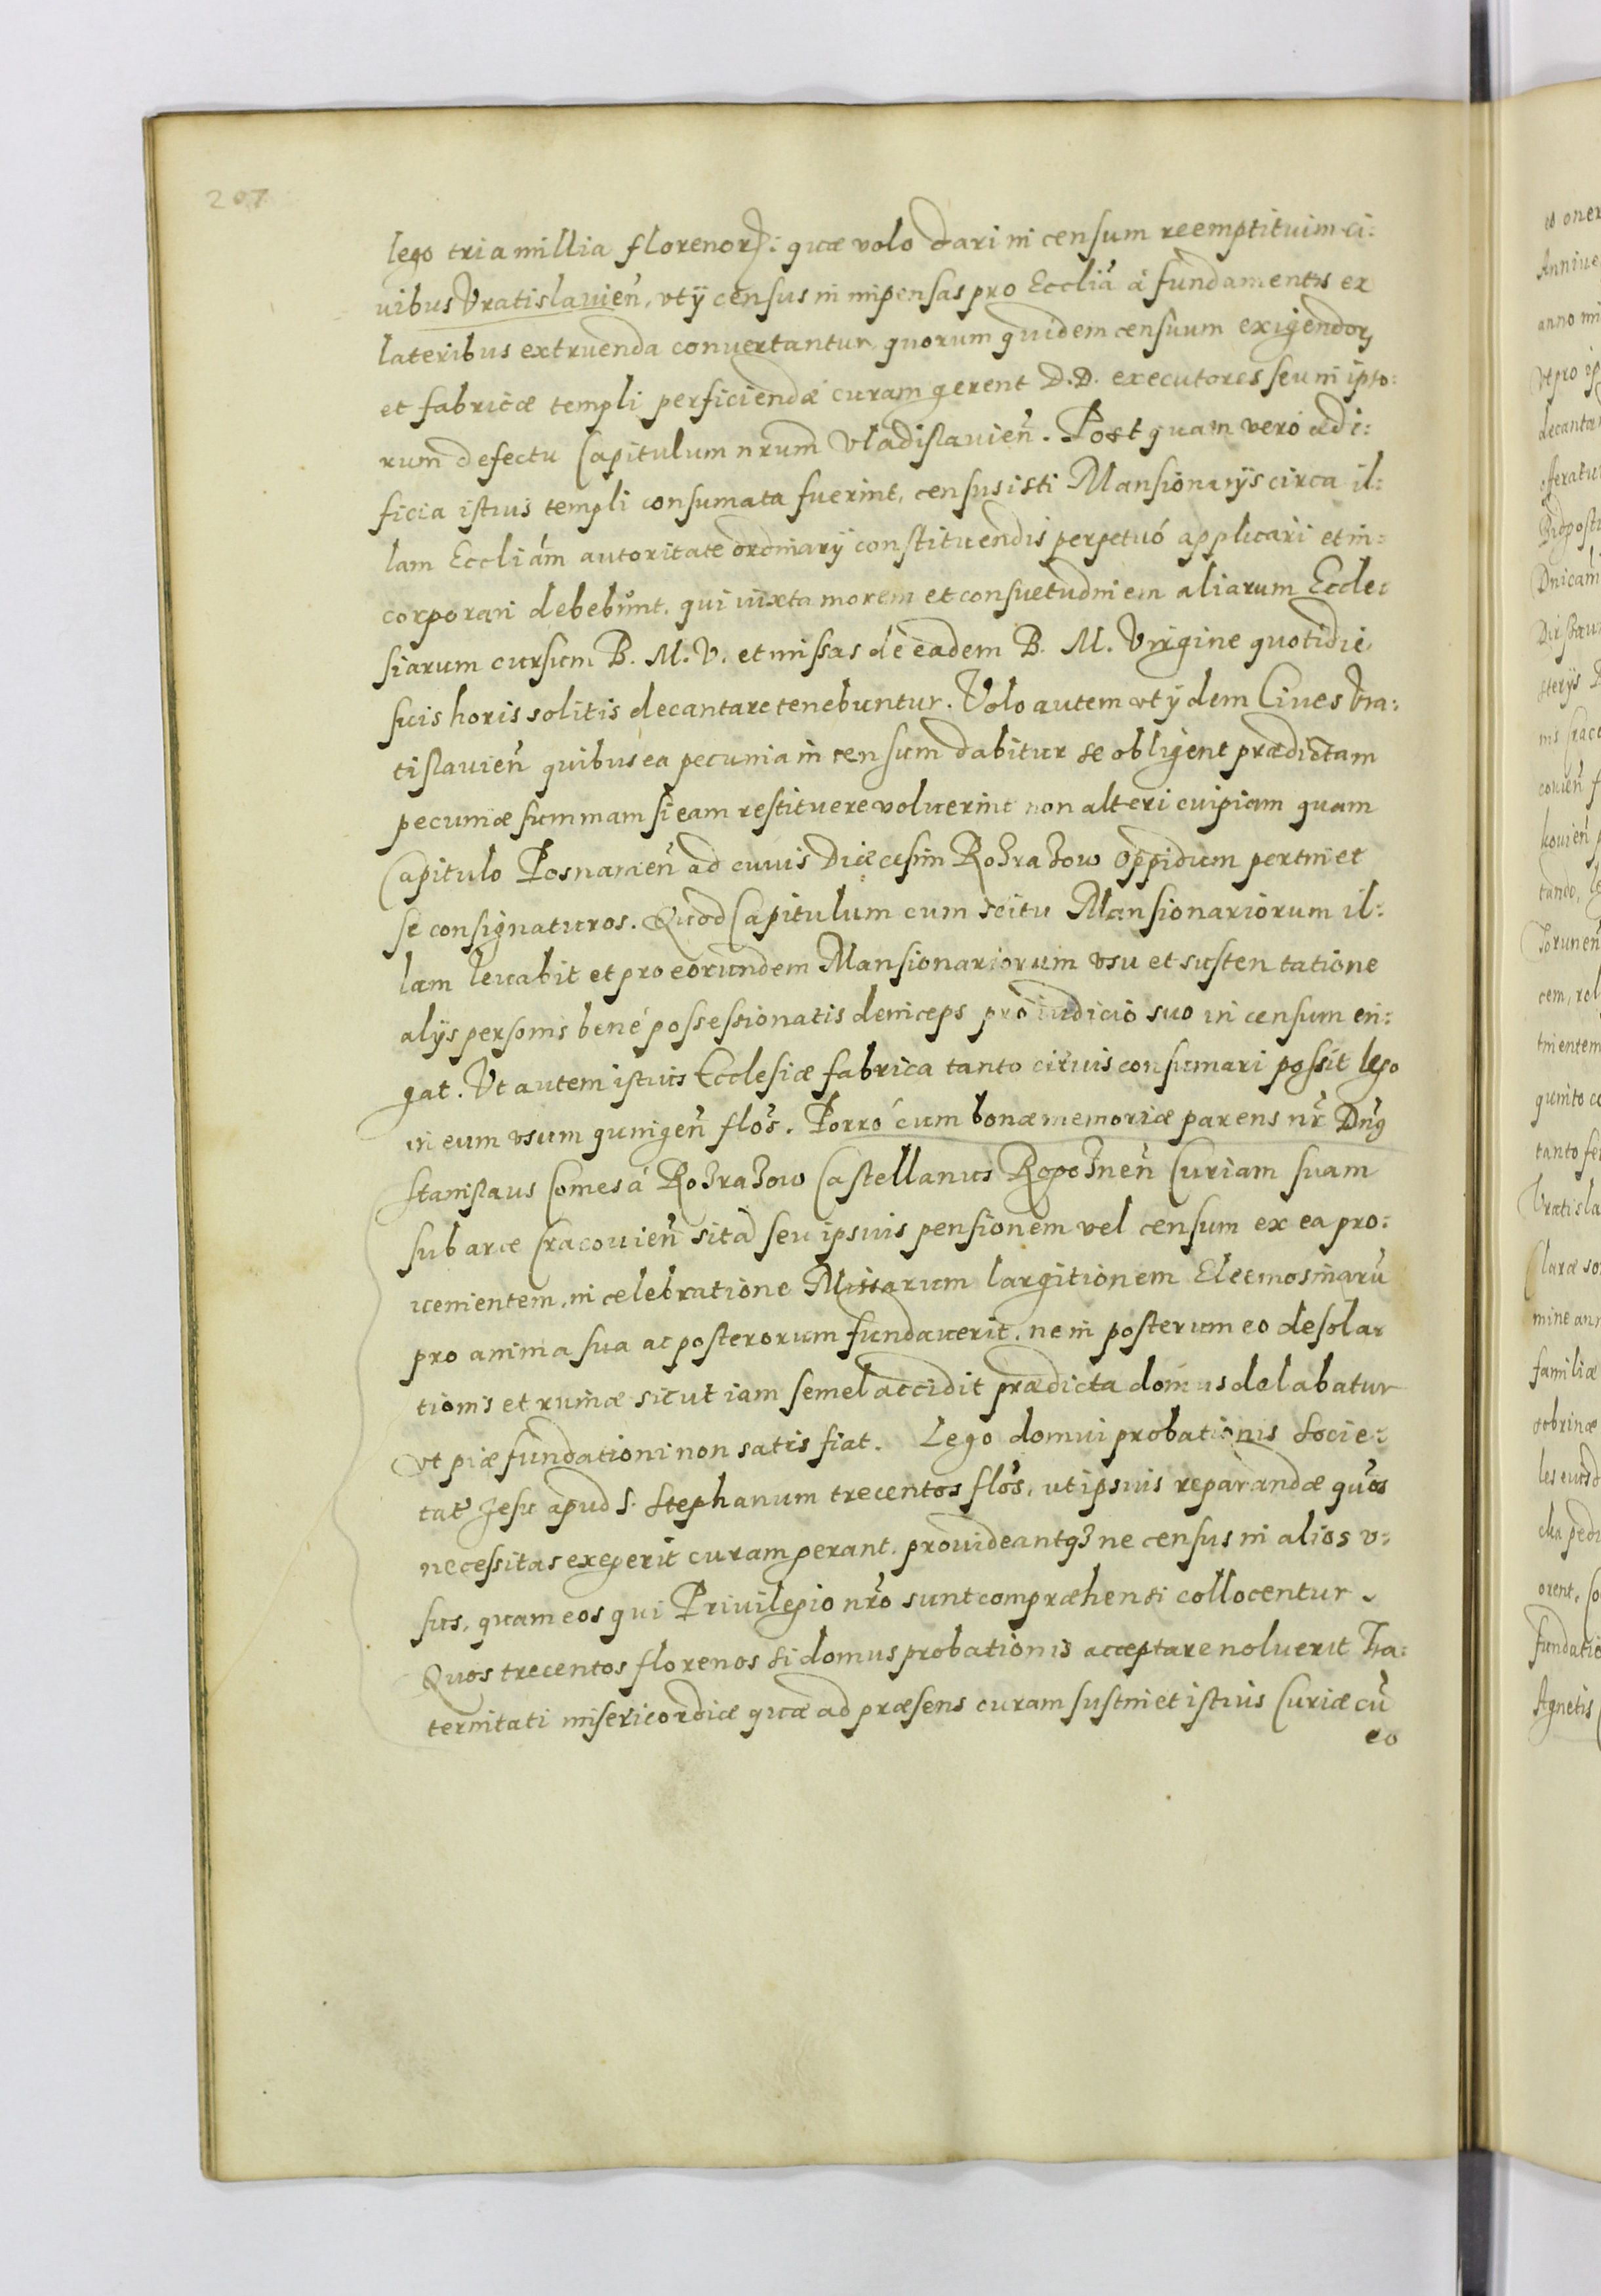 207
lego tria millia florenoꝝ: quæ volo dari in censum reemptituim ci:
uibus Vratislauień, vt ij census in impensas pro Eccliã à fundamentis ex
lateribus extruenda conuertantur, quorum quidem censuum exigendoꝝ
et fabricæ templi perficiendæ curam gerent D.D. executores seu in ipso:
rum defectu Capitulum nrum̃ Vladislauień. Post quam vero ædi:
ficia istius templi consumata fuerint, census isti Mansionarijs circa il:
lam Eccliám autoritate ordinarij constituendis perpetuó applicari et in:
corporari debebunt. qui iuxta morem et consuetudinem aliarum Eccle:
siarum cursum B. M. V. et missas de eadem B. M. Virgine quotidie
suis horis solitis decantare tenebuntur. Volo autem vt ijdem Ciues Vra:
tislauień quibus ea pecunia in censum dabitur se obligent prædictam
pecuniæ summam si eam restituere voluerint non alteri cuipiam quam
Capitulo Posnanień ad cuius Diæcesim Rozrazow oppidum pertinet
se consignaturos. Quod Capitulum cum scitu Mansionariorum il:
lam leuabit et pro eorundem Mansionariorum vsu et sustentatione
alijs personis bené possessionatis deinceps pro iudicio suo in censum eri:
gat. Vt autem istius Ecclesiæ fabrica tanto citius consumari possit lego
in eum vsum quingeń flos̃. Porró cum bonæ memoriæ parens nr̃ Dng̃
Stanislaus Comes á Rozrazow Castellanus Rogozneń Curiam suam
sub arce Cracouień sitã seu ipsius pensionem vel censum ex ea pro:
uenientem, in celebratione Missarum largitionem Eleemosinarũ
pro anima sua ac posterorum fundauerit, ne in posterum eo desola:
tionis et ruinæ sicut iam semel accidit prædicta domus delabatur
vt piæ fundationi non satis fiat. Lego domui probationis Socie:
tat̃ Jesu apud S. Stephanum trecentos flos̃, ut ipsius reparandæ quos
necessitas exegerit curam gerant, prouideantqȝ ne census in alios v:
sus, quam eos qui Priuilegio nrõ sunt compræhensi collocentur.
Quos trecentos florenos si domus probationis acceptare noluerit Fra:
ternitati misericordiæ quæ ad præsens curam sustinet istius Curiæ cũ
eo